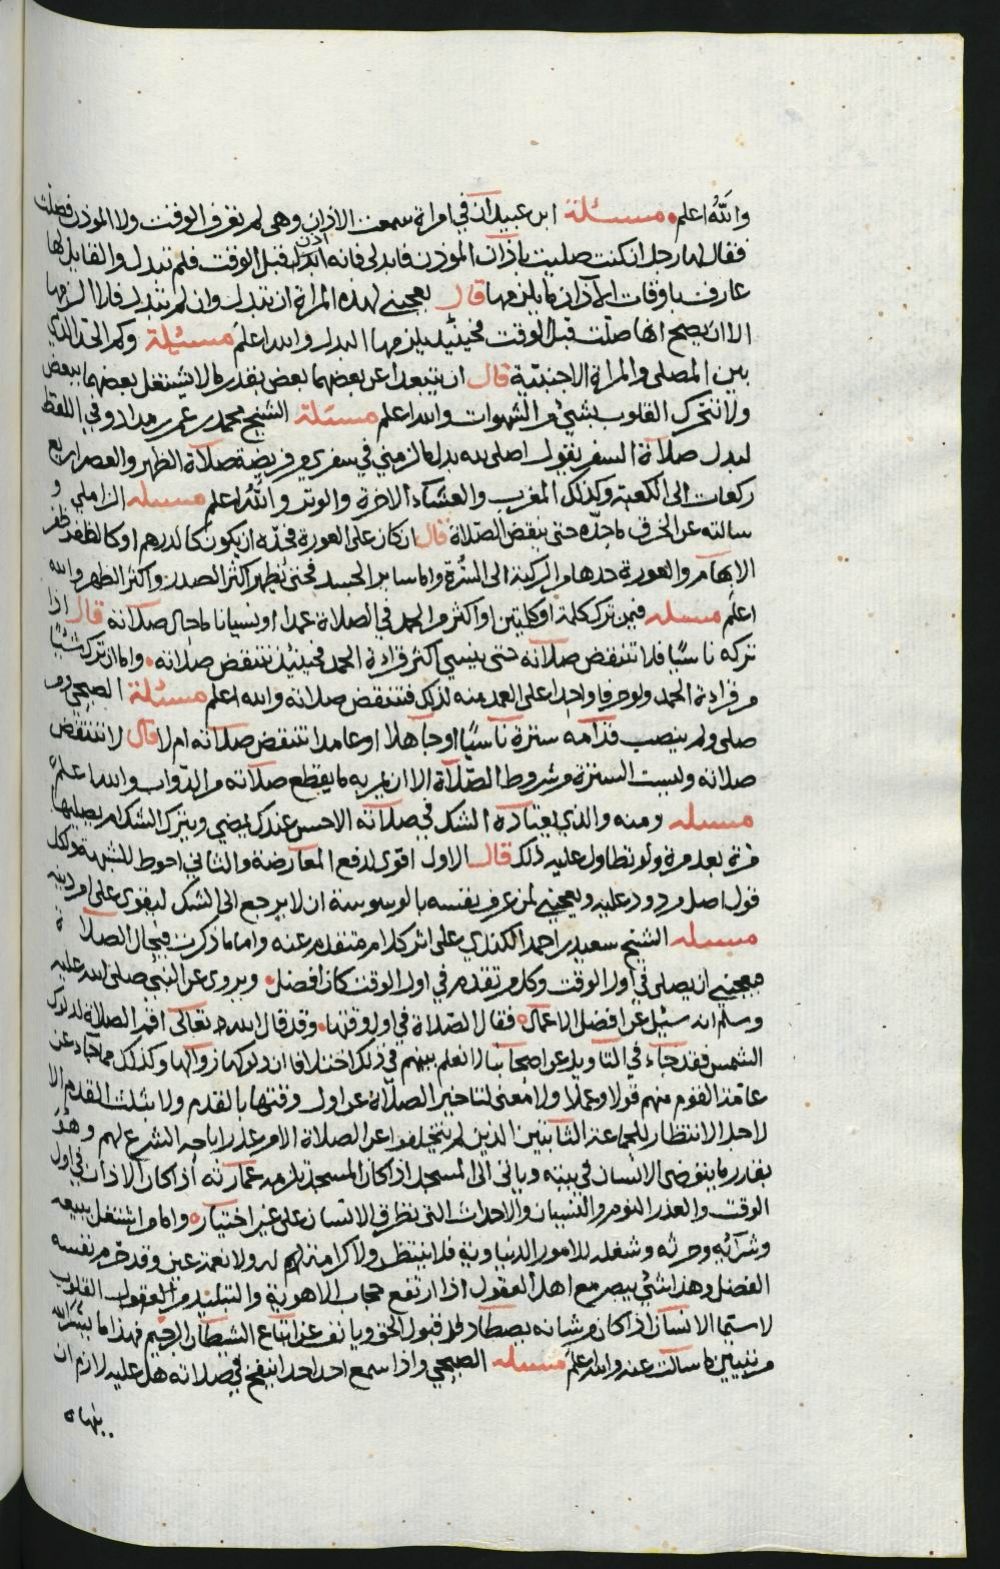 والله اعلم مسئلة ابن عبيدان في امراة سمعت الاذان وهي لم تعرف الوقت ولا الموذن فصلت
فقال لها رجل ان كنت صليت باذان الموذن فابدلي فانه اذن قبل الوقت فلم تبدل والقايل لها
عارف باوقات الاذان ما يلزمها قال يعجبني لهذه المراة ان تبدل وان لم تبدل فلا الزمها
الا ان يصح انها صلت قبل الوقت فحينئذ يلزمها البدل والله اعلم مسئلة وكم الحد الذي
بين المصلي والمراة الاجنبية قال ان تبعدا عن بعضهما بعض بقدر ما لا يشتغل بعضهما ببعض
ولا تتحرك القلوب بشئ من الشهوات والله اعلم مسئلة الشيخ محمد بن عمر بن مداد وفي اللفظ
لبدل صلاة السفر يقول اصلي لله بدل ما لزمني في سفري من فريضة صلاة الظهر والعصر اربع
ركعات الى الكعبة وكذلك المغرب والعشاء الاخرة والوتر والله اعلم مسئله الزاملي و
سالته عن الخرق ما حده حتى ينقض الصلاة قال ان كان على العورة فحده ان يكون كالدرهم او كالظفر ظفر
الابهام والعورة حدها من الركبة الى السرة واما ساير الجسد فحتى يظهر اكثر الصدر واكثر الظهر والله
اعلم مسئله فيمن ترك كلمة او كلمتين او اكثر من الحمد في الصلاة عمدا او نسيانا ما حال صلاته قال اذا
تركه ناسيا فلا تنقض صلاته حتى ينسي اكثر قراءة الحمد فحينئذ تنتقض صلاته واما ان ترك شيئا
من قراءة الحمد ولو حرفا واحدا على العمد منه لذلك فتنتقض صلاته والله اعلم مسئلة الصبحي ومن
صلى ولم ينصب قدامه سترة ناسيا او جاهلا او عامدا تنتقض صلاته ام لا قال لا تنتقض
صلاته وليست السترة من شروط الصلاة الا ان يمر به ما يقطع صلاته من الدواب والله اعلم
مسئله ومنه والذي يعتاده الشك في صلاته الاحسن عندك يمضي ويترك الشك ام يصليها
مرة بعد مرة ولو تطاول عليه ذلك قال الاول اقوى لدفع المعارضة والثاني احوط للشبهة ولكل
قول اصل مردود عليه ويعجبني لمن عرف نفسه بالوسوسة ان لا يرجع الى الشك ليقوى على امر دينه
مسئله الشيخ سعيد بن احمد الكندي على اثر كلام متقدم عنه واما ما ذكرت فيحال الصلاة
فيعجبني ان يصلى في اول الوقت وكلما تقدم في اول الوقت كان افضل ويروى عن النبي صلى الله عليه
وسلم انه سئل عن افضل الاعمال فقال الصلاة في اول وقتها وقد قال الله تعالى اقم الصلاة لدلوك
الشمس فقد جاء في التاويل عن اصحابنا لا نعلم بينهم في ذلك اختلافا ان دلوكها زوالها وكذلك مما جاء عن
عامة القوم منهم قولا وعملا ولا معنى لتاخير الصلاة عن اول وقتها بالقدم ولا بثلث القدم الا
لاجل الانتظار للجماعة التابتين الذين لم يتخلفوا عن الصلاة الا من عذر اباحه الشرع لهم وهذا
بقدر ما يتوضى الانسان في بيته وياتي الى المسجد اذا كان المسجد تلزمه عمارته اذا كان الاذان في اول
الوقت والعذر النوم والنسيان والاحداث التي تطرق الانسان على غير اختياره واما من اشتغل ببيعه
وشرائه وحرثه وشغله للامور الدنياوية فلا ينتظر ولا كرامة له ولا نعمة عين وقد حرم نفسه
الفضل وهذا شئ يبصره اهل العقول اذا ارتفع حجاب الاهوية والتبليد من العقول القلوب
لا سيما الانسان اذا كان من شانه يصطاد لها قبول الحق ويانف عن اتباع الشيطان الرجيم فهذا ما يسر الله
من تبيين ما سالت عنه والله اعلم مسئله الصبحي واذا سمع احد احدا ينفخ في صلاته هل عليه لازم ان
ينهاه